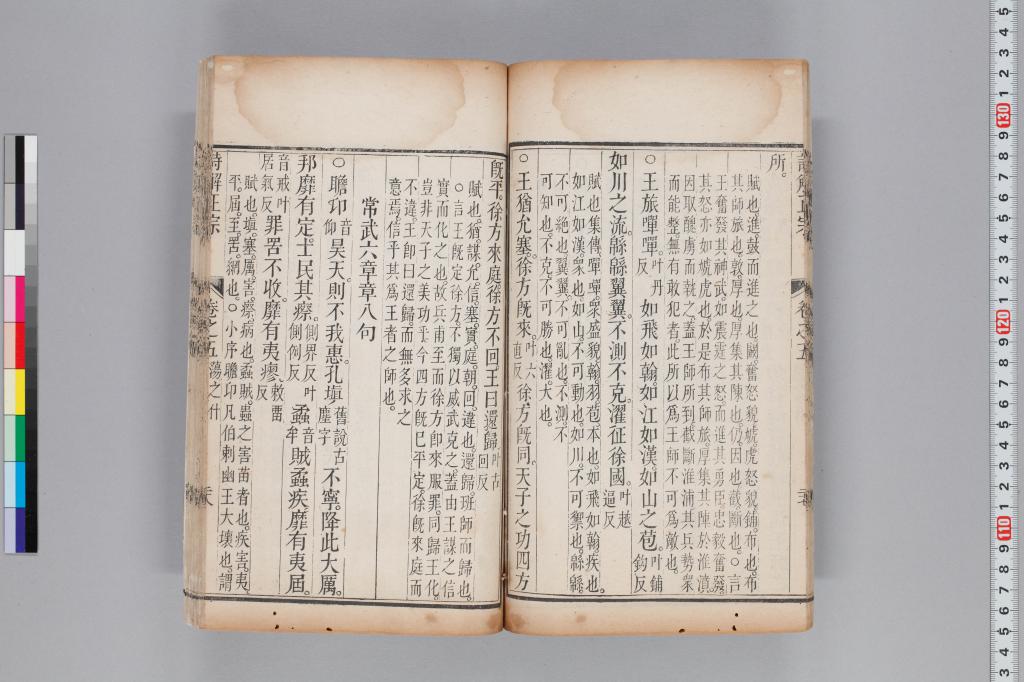 所。
賦也進鼓而進之也闞奮怒貌虓虎怒貌鋪布也布
其師旅也敦厚也厚集其陳也仍因也截斷也。○言
王奮發其神武如震霆之怒而進其勇臣忠毅奮發
其怒亦如虓虎也於是布其師旅厚集其陣於淮濆
因取醜虜而執之蓋王師所到截斷淮浦其兵勢眾
而能整無有敢犯者此所以爲王師不可爲敵也。
○王旅嘽嘽。叶丹反 如飛如翰。如江如漢。如山之苞。叶鋪鉤反
如川之流。緜緜翼翼。不測不克。濯征徐國。叶越逼反
賦也集傳嘽嘽眾盛貌翰羽苞本也如飛如翰疾也。
如江如漢眾也如山不可動也如川不可禦也緜緜
不可絶也翼翼不可亂也不測不
可知也。不克不可勝也濯大也。
○王猶允塞。徐方既來。叶六直反 徐方既同。天子之功。四方
既平。徐方來庭。徐方不回。王曰還歸。叶古回反
賦也猶謀允信塞實庭朝回違也還歸班師而歸也。
○言王既定徐方不獨以威武克之蓋由王謀之信
實而化之也故兵甫至而徐方即來服罪同歸王化
豈非天子之美功乎今四方既已平定徐既來庭而
不違王即曰還歸而無多求之
意焉信乎其爲王者之師也。
常武六章章八句
○瞻卬音仰昊天。則不我惠。孔塡舊說古塵字不寧。降此大厲。
邦靡有定。士民其瘵。側界反叶側例反 蟊音牟賊蟊疾。靡有夷屆。
音戒叶居氣反 罪罟不收。靡有夷瘳。敕留反
賦也塡塞厲害瘵病也蟊賊蟲之害苗者也疾害夷
平屆至罟網也。○小序瞻卬凡伯刺幽王大壞也謂
詩解正宗 卷之五 蕩之什